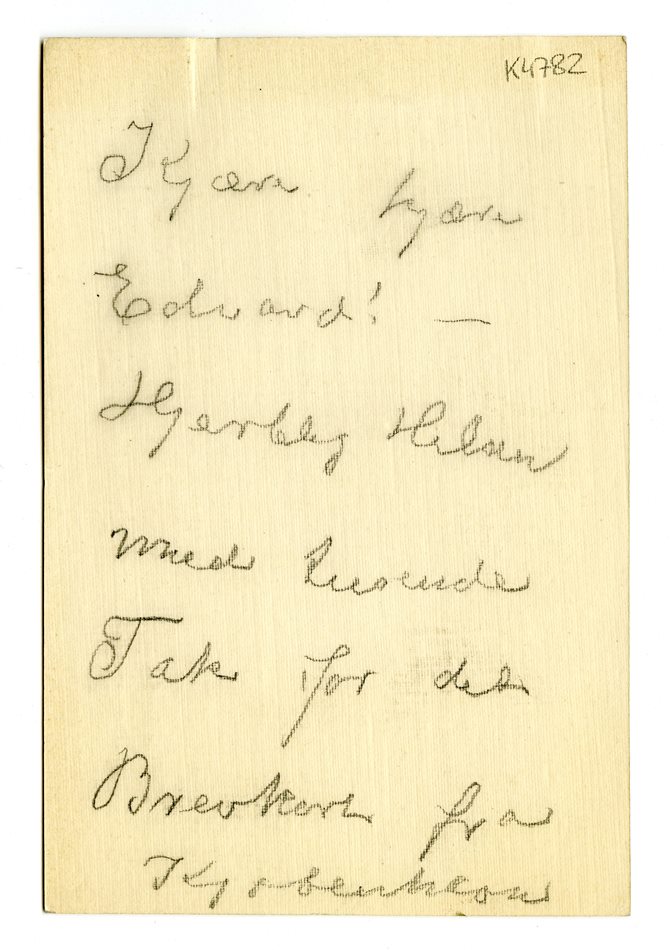 K4782
Kjære kjære
Edvard! —
Hjertlig Hilsen
med tusende
Tak for det
Brevkort fra
Kjøbenhavn